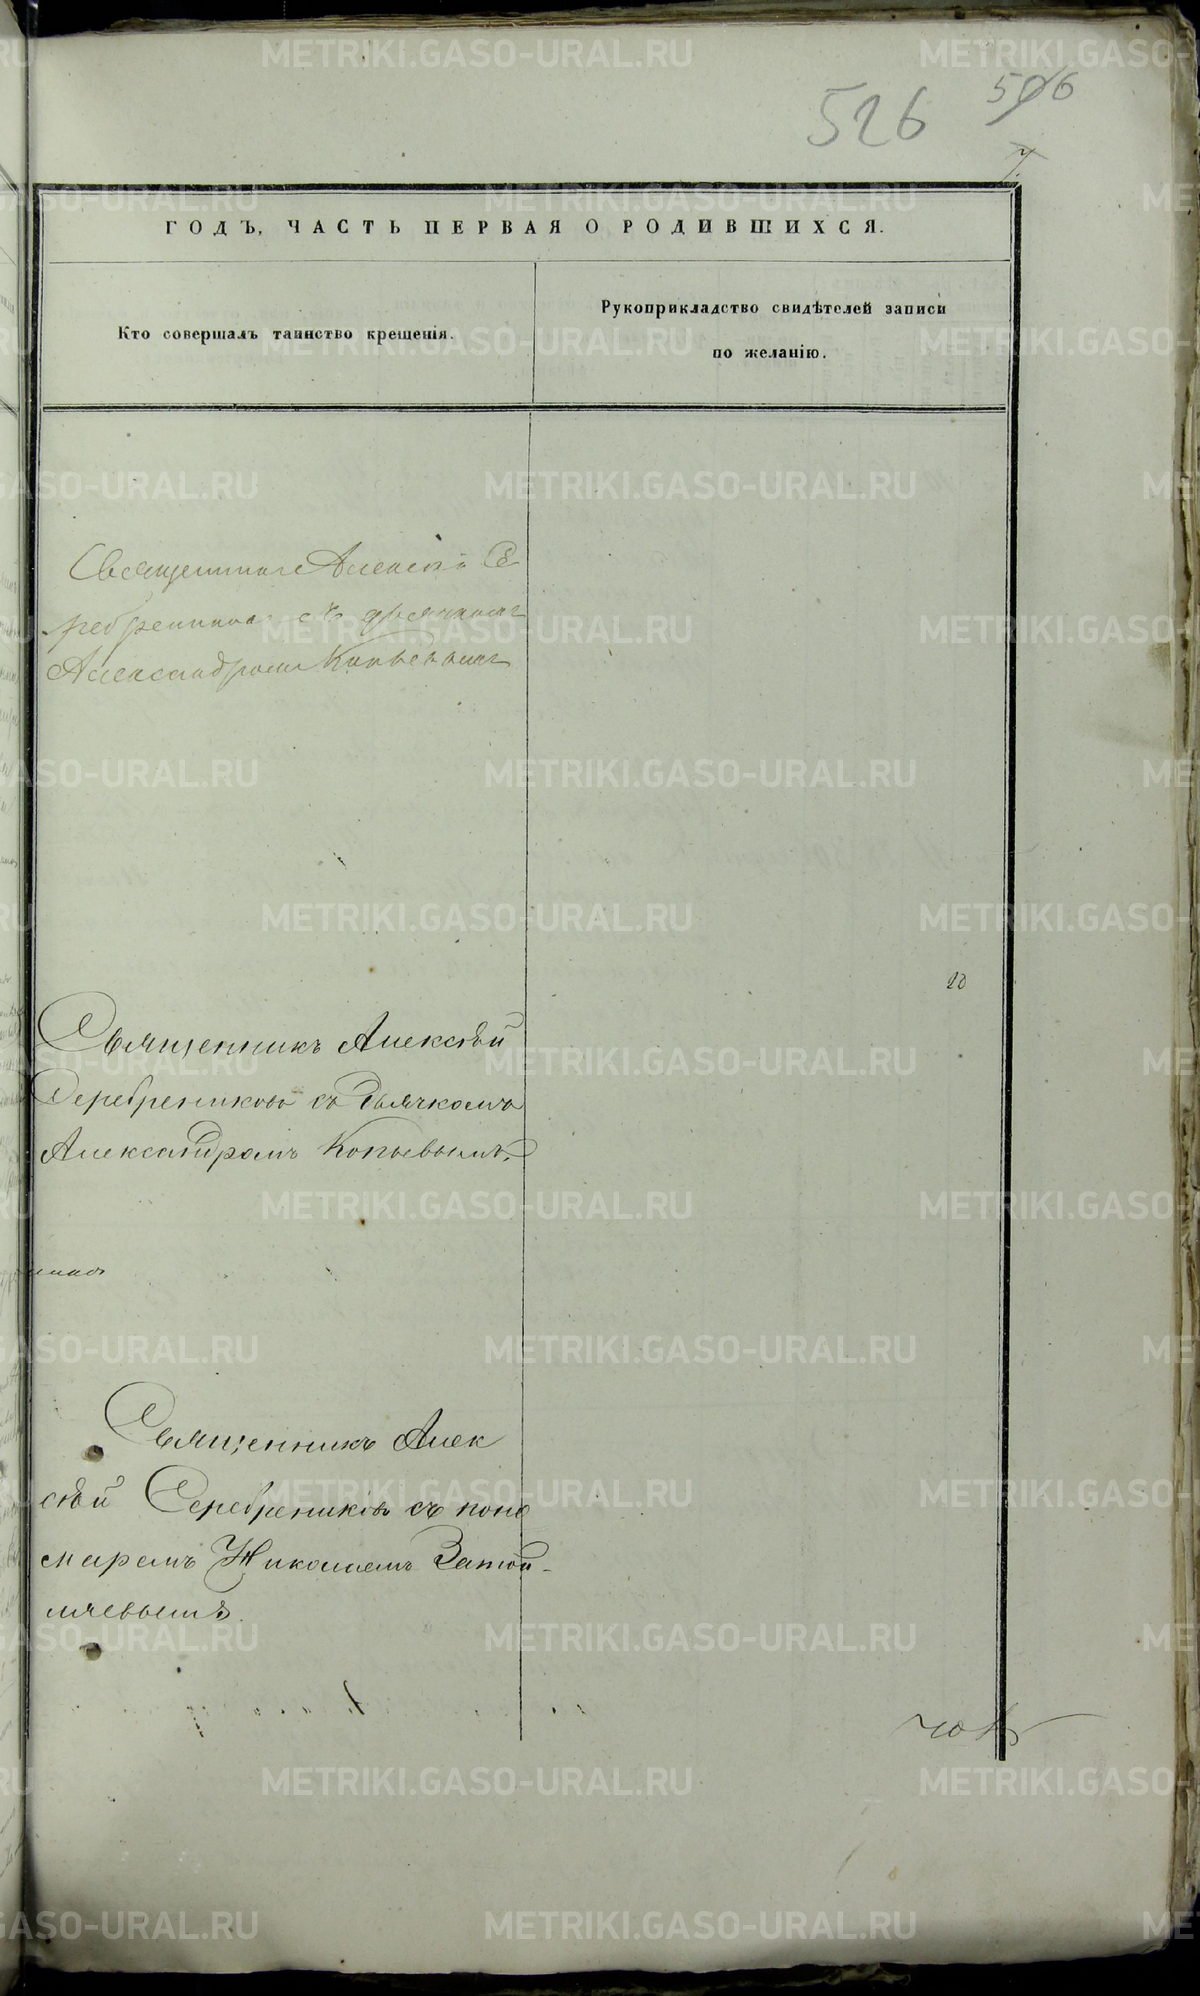 526 506
7.
ГОДЪ, ЧАСТЬ ПЕРВАЯ О РОДИВШИХСЯ.
Кто совершалъ таинство крещенія.
Рукоприкладство свидѣтелей записи
по желанію.
Священникъ Алексѣй Се
ребрениковъ съ дьячкомъ
Александромъ Копьевымъ
20
Священникъ Алексѣй
Серебрениковъ съ Дьячкомъ
Александромъ Копьевымъ.
Священникъ Алек
сѣй Серебрениковъ съ поно
маремъ Николаемъ
METRIKI.GASO-URAL.RU